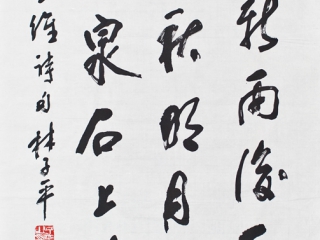 新雨後
秋明月
泉石上
維詩句林子平